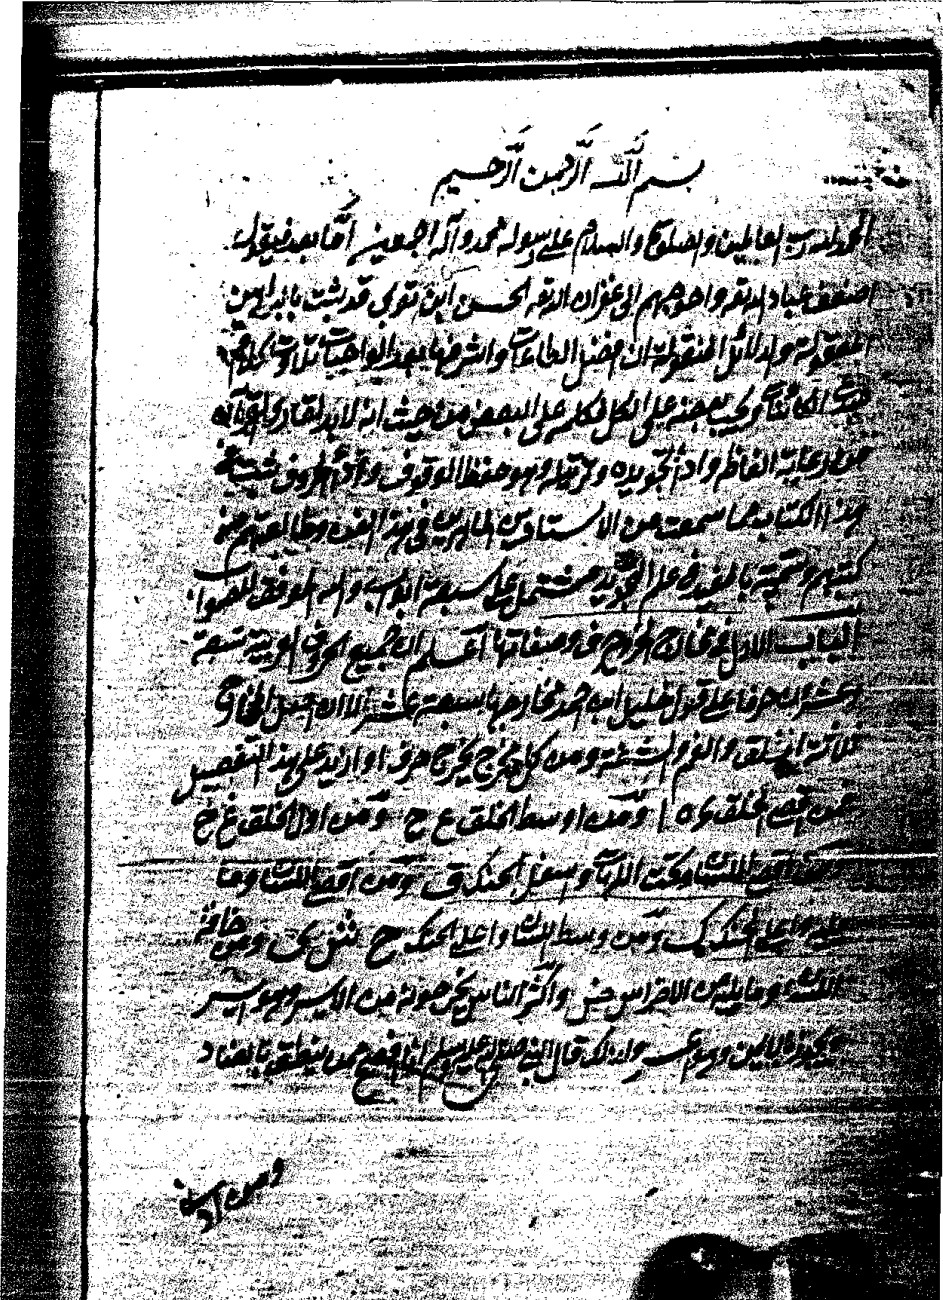 بسم الله الرحمن الرحيم
الحمد لله رب العالمين والصلوة والسلام على رسوله محمد وآله اجمعين اما بعد فيقول
اضعف عباد الله واحوجهم الى غفران الله الحسن ابن قد ثبت بالبراهين
المعقولة والدلائل المنقولة ان افضل الطاعات واشرفها بعد الواجبات تلاوة كلام
على الكل فكله على البعض من حيث انه لابد لقارئ القرآن
من رعاية الفاظه واداء تجويده وترتيله وهو حفظ الوقوف واداء الحروف
هذا الكتاب مما سمعت من الاستادين الماهرين في هذا الفن وطالعته من
كتبهم وسميته بالمفيد في علم التجويد مشتمل على سبعة ابواب والله الموفق للصواب
الباب الاول في مخارج الحروف وصفاتها اعلم ان جميع الحروف العربية تسعة
وعشرون حرفا على قول خليل ابن احمد مخارجها سبعة عشر الا ان المخارج
ثلاثة الحلق والفم والشفة ومن كل مخرج يخرج حرف او ازيد على هذا التفصيل
من اقصى الحلق ء ه ا ومن اوسط الحلق ع ح ومن اول الحلق غ خ
ومن اقصى اللسان تحت اللهاة واسفل الحنك ق ومن اقصى اللسان وما
يليه واعلى الحنك ك ومن وسط اللسان واعلى الحنك ج ش ى ومن حافة
اللسان وما يليه من الاضراس ض واكثر الناس يخرجونه من الايسر وهو ايسر
ويجوز من الايمن وهو عسر ولذلك قال النبي صلى الله عليه وسلم انا افصح من ينطق بالضاد
ومن ادنى